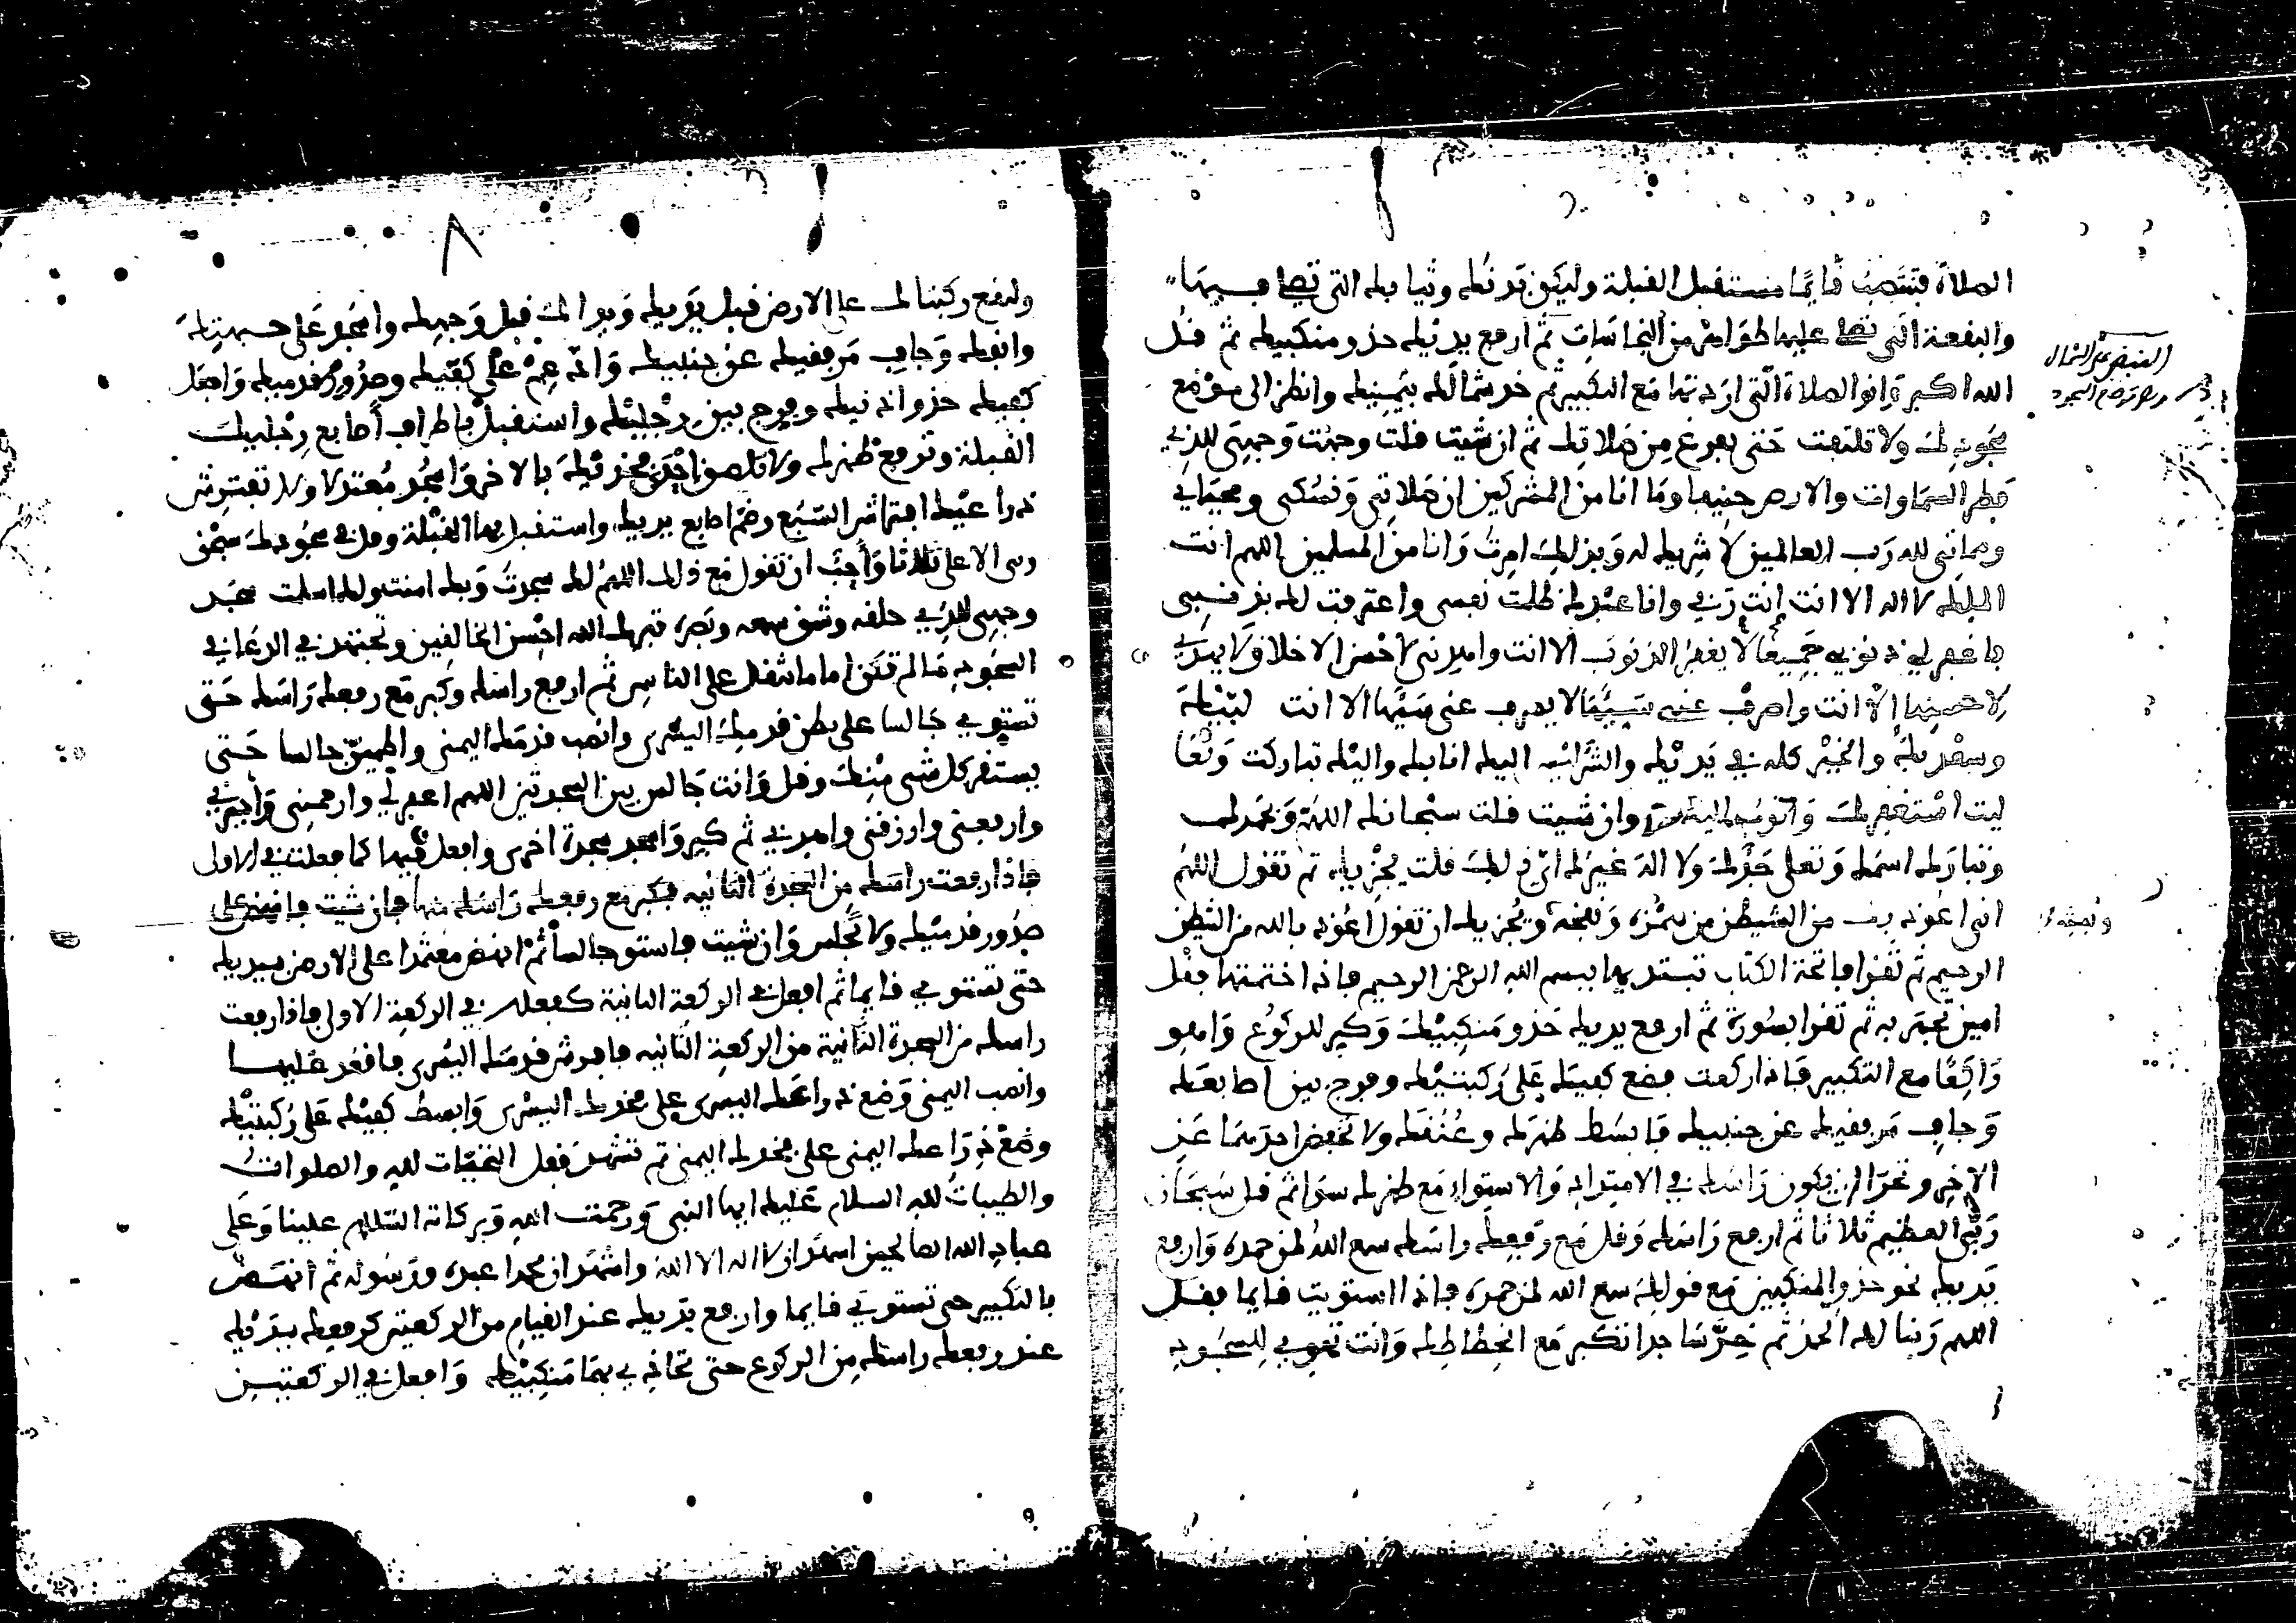 الصلاة فتنتصب قائما مستقبل القبلة وليكن بدنك وثيابك التي تصلي فيها
والبقعة التي تصلي عليها طواهر من النجاسات ثم ارفع يديك حذو منكبيك ثم قل
الله اكبر وانو الصلاة التي اردتها مع التكبير ثم خذ شمالك بيمينك وانظر الى موضع
سجودك ولا تلتفت حتى تفرغ من صلاتك ثم ان شيت قلت وجهت وجهي للذي
فطر السماوات والارض حنيفا وما انا من المشركين ان صلاتي ونسكي ومحياي
ومماتي لله رب العالمين لا شريك له وبذلك امرت وانا من المسلمين اللهم انت
الملك لا اله الا انت انت ربي وانا عبدك ظلمت نفسي واعترفت لك بذنبي
فاغفر لي ذنوبي جميعا لا يغفر الذنوب الا انت واهدني لاحسن الاخلاق لا يهدي
لاحسنها الا انت واصرف عني سيئها لا يصرف عني سيئها الا انت لبيك
وسعديك والخير كله في يديك والشر ليس اليك انا بك واليك تباركت وتعا
ليت استغفرك واتوب اليك وان شيت قلت سبحانك اللهم وبحمدك
وتبارك اسمك وتعلى جدك ولا اله غيرك اي ذلك قلت يجزيك ثم تقول اللهم
اني اعوذ بك من الشيطن من همزه ونفخه ويجزيك ان تقول اعوذ بالله من الشيطن
الرجيم ثم تقرا فاتحة الكتاب تبتديها ببسم الله الرحمن الرحيم فاذا ختمتها فقل
امين تجهر به ثم تقرا بسورة ثم ارفع يديك حذو منكبيك وكبر للركوع واهو
راكعا مع التكبير فاذا ركعت فضع كفيك على ركبتيك وفرج بين اصابعك
وجاف مرفقيك عن جنبيك فابسط ظهرك وعنقك ولا تخفض احدهما عن
الاخر وتحرا ان يكون راسك في الامتداد والاستواء مع ظهرك سوا ثم قل سبحان
ربي العظيم ثلاثا ثم ارفع راسك وقل مع رفعك راسك سمع الله لمن حمده وارفع
يديك نحو حذو المنكبين مع قولك سمع الله لمن حمده فاذا استويت قايما فقل
اللهم ربنا لك الحمد ثم خر ساجدا تكبر مع انحطاطك وانت تهوي للسجود
وليقع ركبتاك على الارض قبل يديك ويداك قبل وجهك واسجد على جبهتك
وانفك وجاف مرفقيك عن جنبيك وادعم على كفيك وصدور قدميك واجعل
كفيك حذو اذنيك وفرج بين رجليك واستقبل باطراف أصابع رجليك
القبلة وترفع ظهرك ولا تلصق احدى فخذيك بالاخرى واسجد معتدلا ولا تفترش
ذراعيك افتراش السبع وضم اصابع يديك واستقبل بها القبلة وقل في سجودك سبحن
ربي الاعلى ثلاثا وأحب ان تقول مع ذلك اللهم لك سجدت وبك امنت ولك اسلمت سجد
وجهي للذي خلقه وشق سمعه وبصره تبرك الله احسن الخالقين وتجتهد في الدعا في
السجود ما لم تكن اماما تثقل على الناس ثم ارفع راسك وكبر مع رفعك راسك حتى
تستوي جالسا على بطن قدمك اليسرى وانصب قدمك اليمنى واطمين جالسا حتى
يستقر كل شي منك وقل وانت جالس بين السجدتين اللهم اغفر لي وارحمني واجبرني
وارفعني وارزقني واهدني ثم كبر واسجد سجدة اخرى وافعل فيها كما فعلت في الاولى
فاذا رفعت راسك من السجدة الثانية فكبر مع رفعك راسك منها فان شيت فانهض على
صدور قدميك ولا تجلس وان شيت فاستو جالسا ثم انهض معتمدا على الارض بيديك
حتى تستوي قايما ثم افعل في الركعة الثانية كفعلك في الركعة الاولى فاذا رفعت
راسك من السجدة الثانية من الركعة الثانيه فافرش قدمك اليسرى فاقعد عليها
وانصب اليمنى وضع ذراعك اليسرى على فخذك اليسرى وابسط كفيك على ركبتيك
وضع ذراعك اليمنى على فخذك اليمنى ثم تشهد فقل التحيات لله والصلوات
والطيبات لله السلام عليك ايها النبي ورحمت الله وبركاته السلام علينا وعلى
عباد الله الصالحين اشهد ان لا اله الا الله واشهد ان محمدا عبده ورسوله ثم انهض
بالتكبير حتى تستوي قايما وارفع يديك عند القيام من الركعتين كرفعك يديك
عند رفعك راسك من الركوع حتى تحاذي بهما منكبيك وافعل في الركعتين